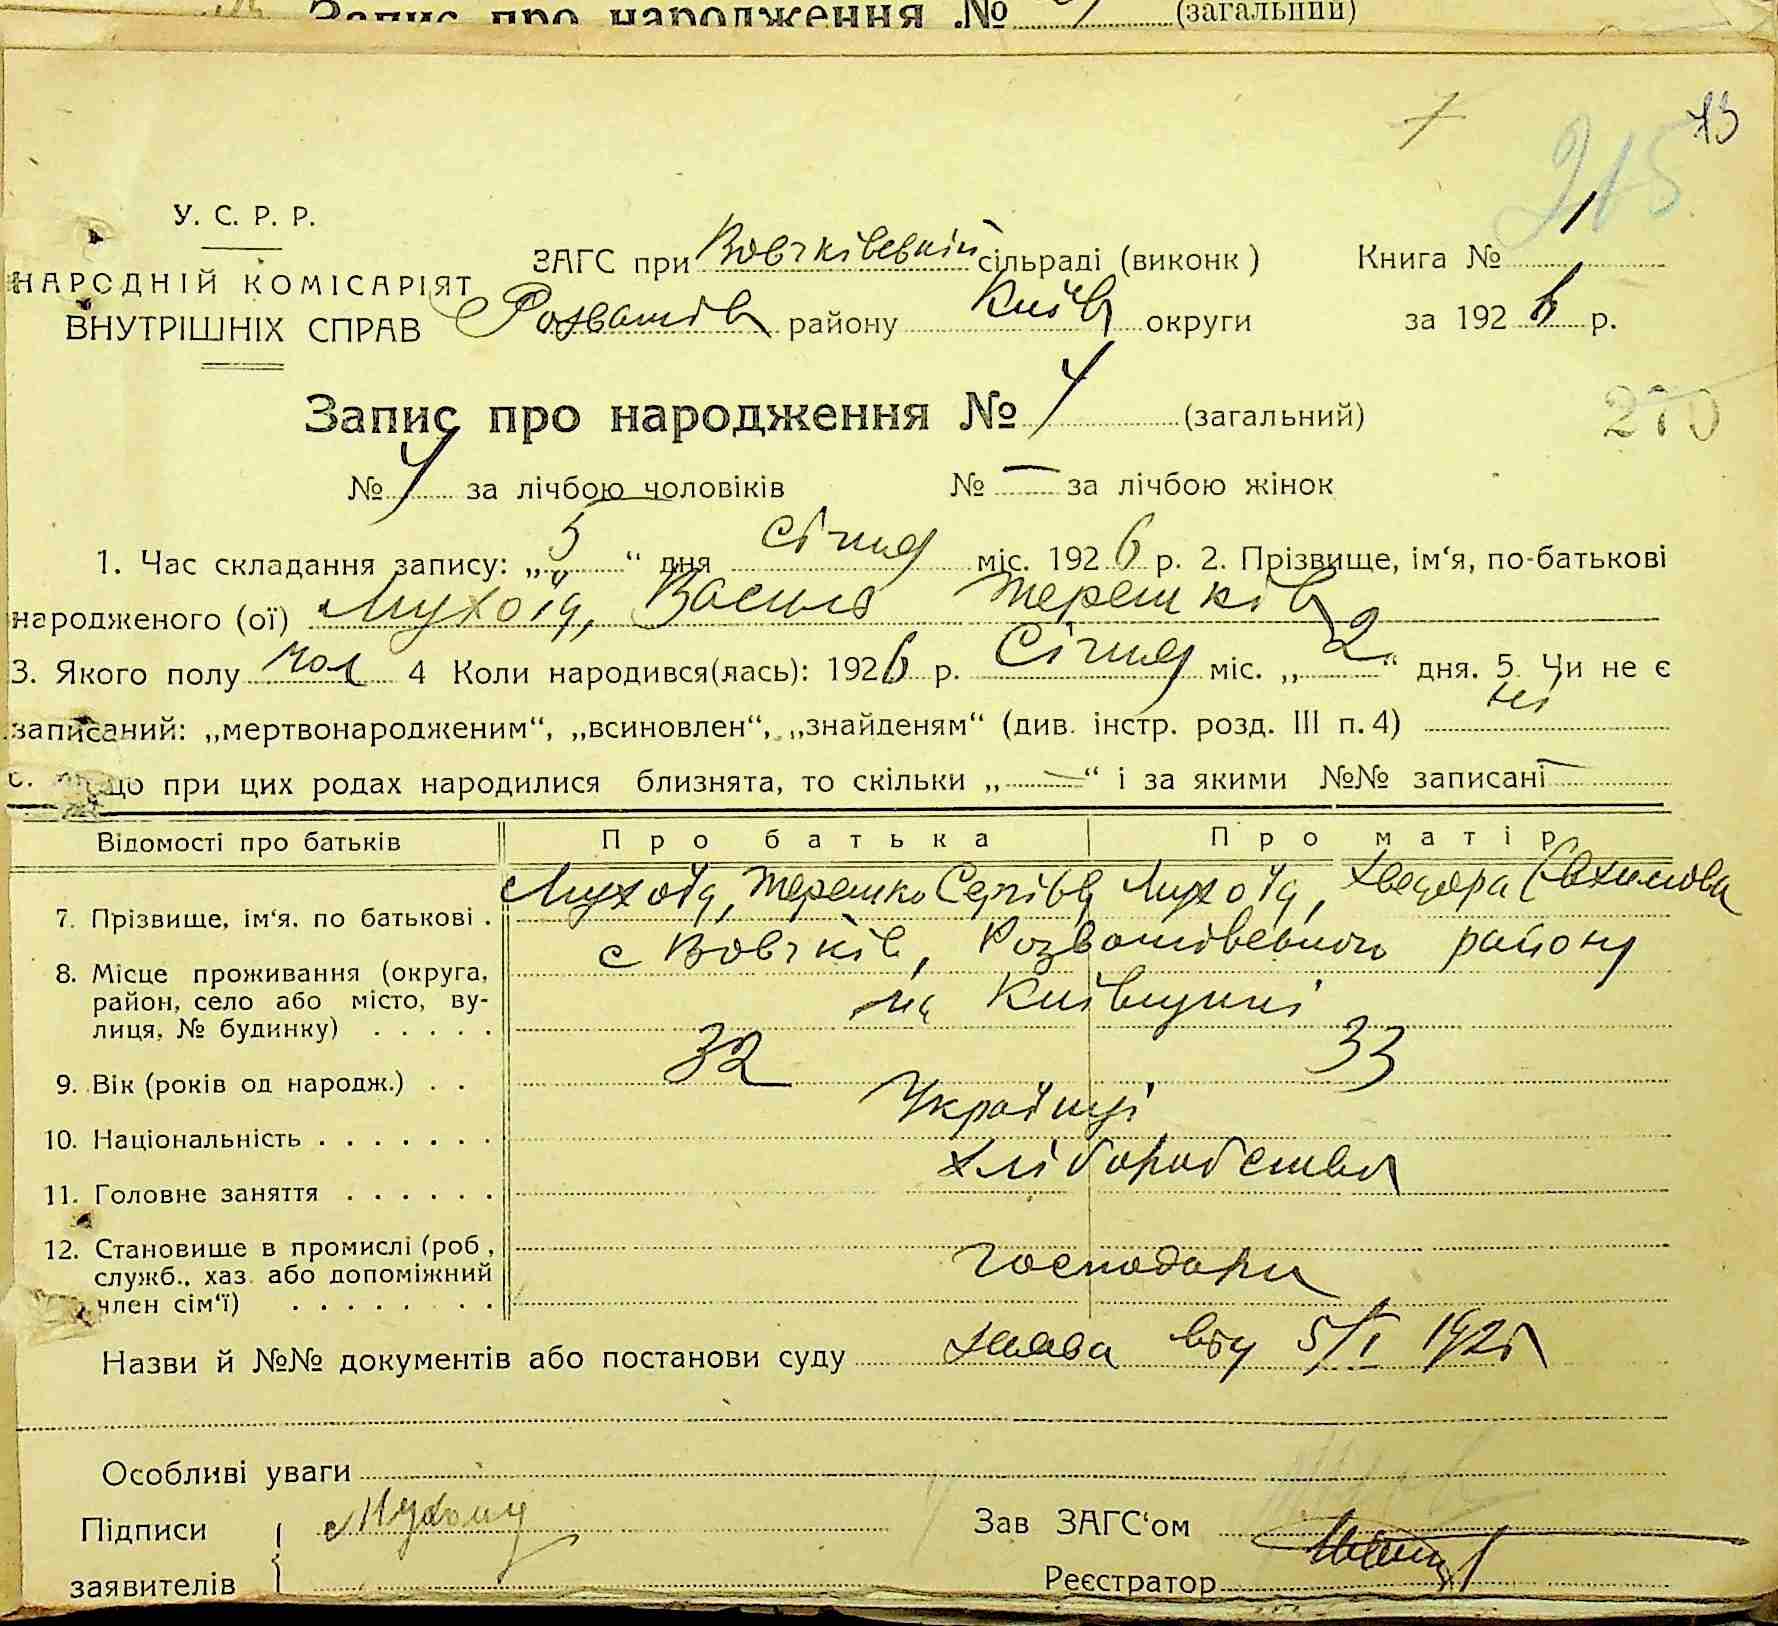 Запис про народження № (загальний)
73
215
У. С. Р. Р.
ЗАГС при Вовчківській сільраді (виконк) Книга № 1
НАРОДНІЙ КОМІСАРІЯТ
ВНУТРІШНІХ СПРАВ
Розважів району Київ округи за 1926 р.
Запис про народження № 4 (загальний)
270
№ 4 за лічбою чоловіків № — за лічбою жінок
1. Час складання запису: „5“ дня січня міс. 1926 р. 2. Прізвище, ім‘я, по-батькові
народженого (ої) Мухоїд, Василь Терешків
3. Якого полу чол 4 Коли народився(лась): 1926 р. Січня міс. „2“ дня. 5. Чи не є
записаний: „мертвонародженим“, „всиновлен“, „знайденям“ (див. інстр. розд. III п. 4) ні
що при цих родах народилися близнята, то скільки „—“ і за якими №№ записані —
Відомості про батьків Про батька Про матір
7. Прізвище, ім‘я. по батькові . Мухоїд, Терешко Сергієв Мухоїд, Хведора Євхимова
8. Місце проживання (округа, район, село або місто, вулиця, № будинку) . . . . . с Вовчків, Розважівського району
на Київщині
9. Вік (років од народж.) . . 32 33
10. Національність . . . . . . . Українці
11. Головне заняття . . . . . . хліборобства
12. Становище в промислі (роб, служб., хаз. або допоміжний член сім‘ї) . . . . . . . Господари
Назви й №№ документів або постанови суду Заява від 5/I 1926
Особливі уваги
Підписи Мухоид Зав ЗАГС‘ом
заявителів Реєстратор